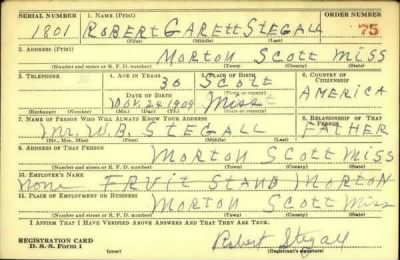 SERIAL NUMBER 1. NAME (Print) ORDER NUMBER
1801 ROBERT GARETT STEGALL 75
(First) (Middle) (Last)
2. ADDRESS (Print)
MORTON SCOTT MISS
(Number and street or R. F. D. number) (Town) (County) (State)
3. TELEPHONE 4. AGE IN YEARS 5. PLACE OF BIRTH 6. COUNTRY OF CITIZENSHIP
30 SCOTT
DATE OF BIRTH (Town or county) AMERICA
NOV. 24 1909 MISS
(Exchange) (Number) (Mo.) (Day) (Yr.) (State or country)
7. NAME OF PERSON WHO WILL ALWAYS KNOW YOUR ADDRESS 8. RELATIONSHIP OF THAT PERSON
Mr. W. B. STEGALL FATHER
(Mr., Mrs., Miss) (First) (Middle) (Last)
9. ADDRESS OF THAT PERSON
MORTON SCOTT MISS
(Number and street or R. F. D. number) (Town) (County) (State)
10. EMPLOYER'S NAME
None FRUIT STAND MORTON
11. PLACE OF EMPLOYMENT OR BUSINESS
MORTON SCOTT Miss
(Number and street or R. F. D. number) (Town) (County) (State)
I AFFIRM THAT I HAVE VERIFIED ABOVE ANSWERS AND THAT THEY ARE TRUE.
REGISTRATION CARD
D. S. S. Form 1
(over)
Robert Stegall
(Registrant's signature)